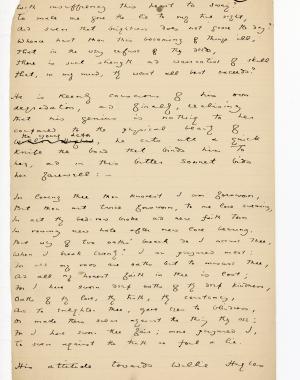 With insufficiency this heart to sway?
To make me give the lie to my true sight,
And swear that brightness does not grace the day?
Whence hast thou this becoming of things ill,
That in the very refuse of thy deeds
There is such strength and warrantise of skill
That, in my mind, thy worst all best exceeds?
He is keenly conscious of his own
degradation, and finally, realising
that his genius is nothing to her
compared to the physical beauty of
the young actor
, he cuts with a quick
knife the bond that binds him to
her, and in this bitter sonnet bids
her farewell: –
In loving thee thou knowest I am forsworn,
But thou art twice forsworn, to me love swearing,
In act thy bed-vow broke and new faith torn
In vowing new hate after new love bearing.
But why of two oaths' breach do I accuse thee,
When I break twenty? I am perjured most;
For all my vows are oaths but to misuse thee,
And all my honest faith in thee is lost;
For I have sworn deep oaths of thy deep kindness,
Oaths of thy love, thy truth, thy constancy,
And, to enlighten thee, gave eyes to blindness,
Or made them swear against the thing they see;
For I have sworn thee fair; more perjured I,
To swear against the truth so foul a lie.
His attitude towards Willie Hughes